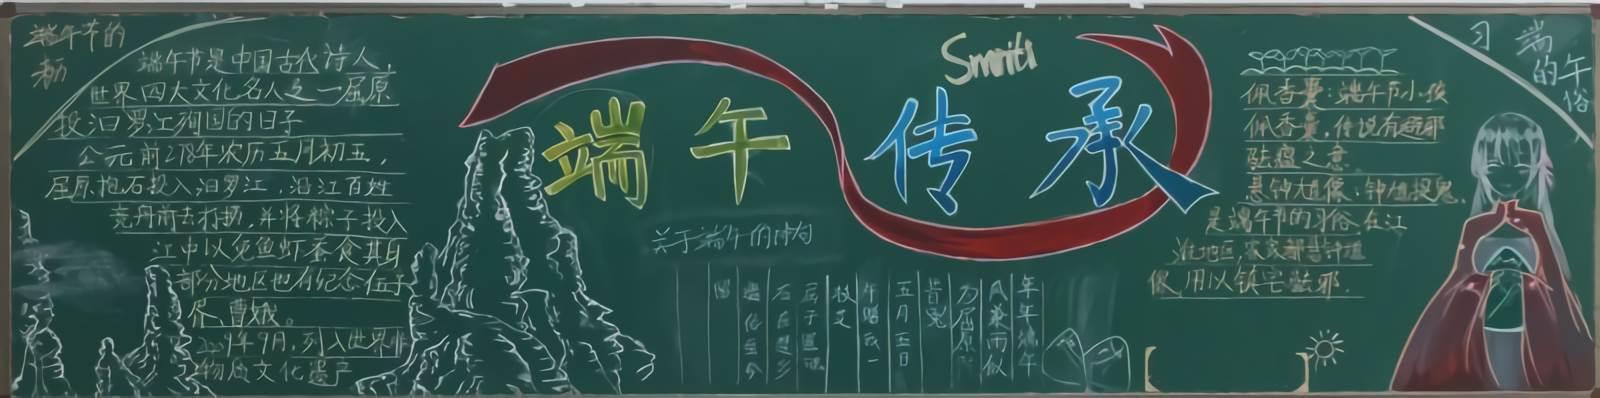 端午节的
端午节是中国古代诗人，
世界四大文化名人之一屈原
投汩罗江殉国的日子
公元前278年农历五月初五，
屈原抱石投入汩罗江，沿江百姓
竞舟前去打捞，并将粽子投入
江中以免鱼虾蚕食其身
部分地区也有纪念伍子
胥、曹娥。
2009年9月，列入世界非
物质文化遗产
Smriti
端午传承
关于端午的诗句
年年端午
风兼雨似
为屈原
昔冤
五月五日
午赠我一
枝艾
习端午
的俗
佩香囊：端午节小孩
佩香囊，传说有避邪
驱瘟之意
悬钟馗像：钟馗捉鬼，
是端午节的习俗。在江
淮地区，家家都悬钟馗
像，用以镇宅驱邪.